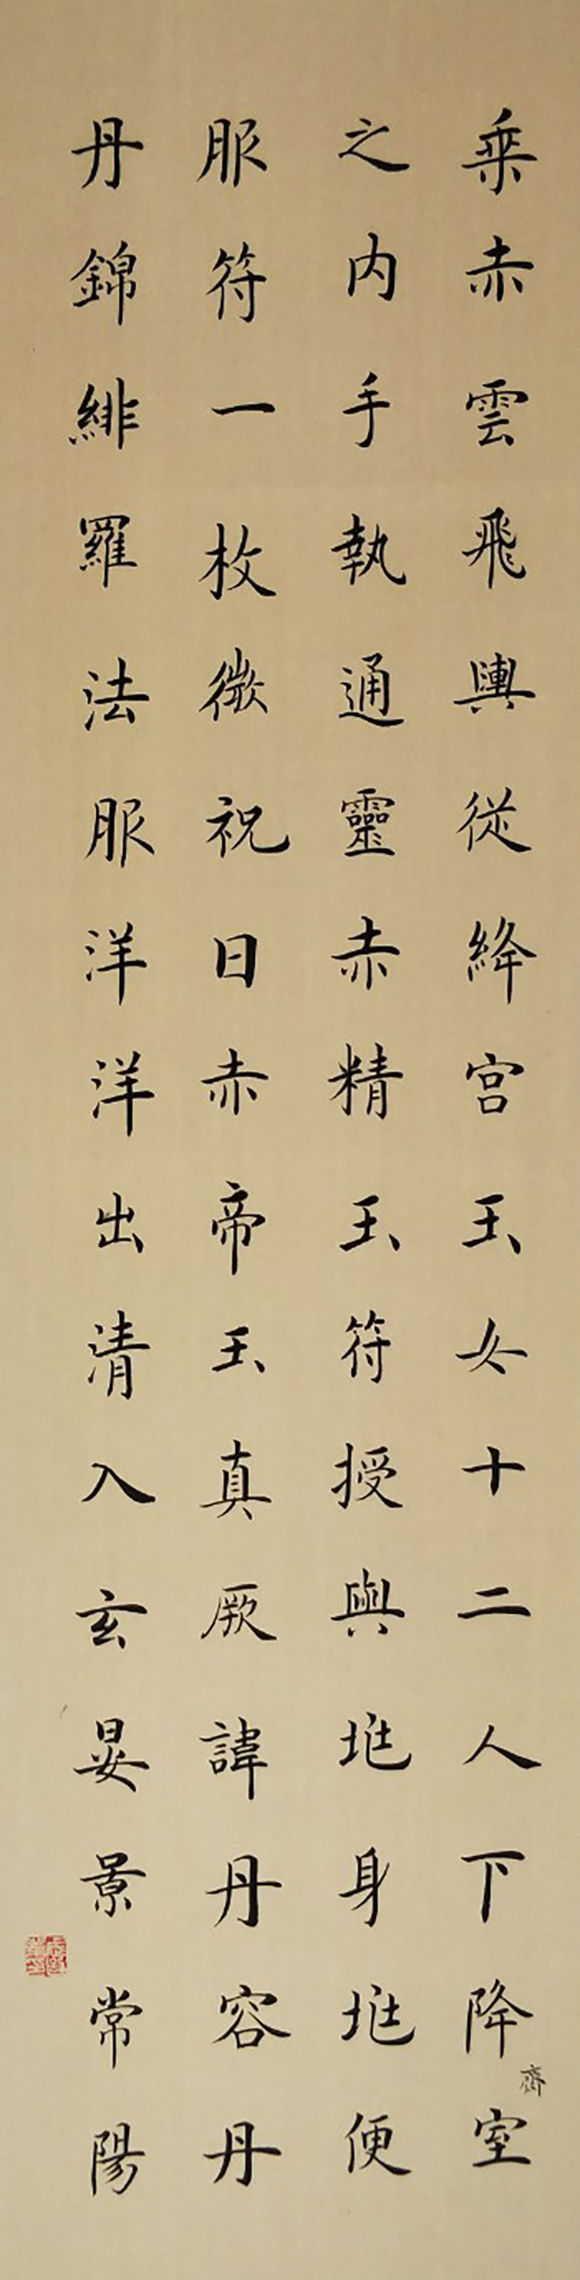 乗赤雲飛輿從絳宮玉女十二人下降齋室
之內手執通靈赤精玉符授與兆身兆便
服符一枚微祝曰赤帝玉真厥諱丹容丹
丹錦緋羅法服洋洋出清入玄晏景常陽